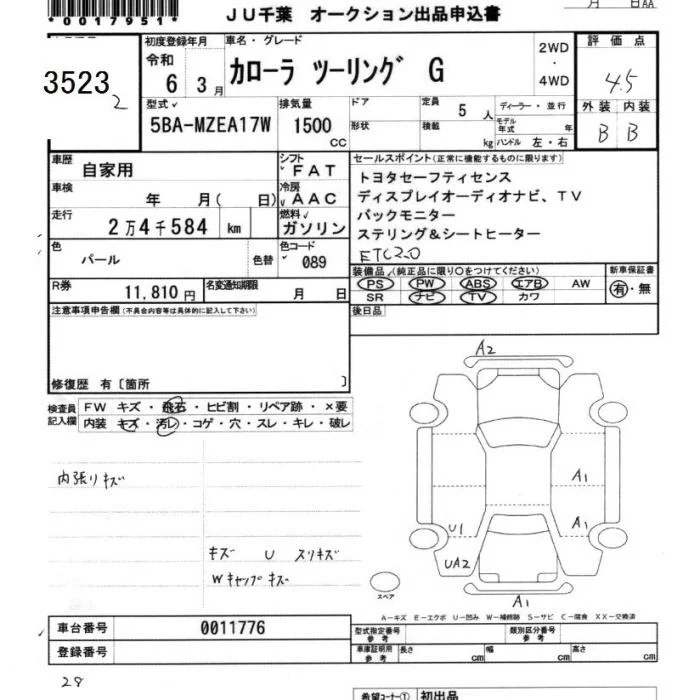 *0017951*
JU千葉 オークション出品申込書
月 日AA
3523
2
初度登録年月
令和
6 3月
車名・グレード
カローラ ツーリング G
2WD
・
4WD
評価点
4.5
外装 内装
B B
型式
5BA-MZEA17W
排気量
1500
cc
ドア
形状
定員 5人
積載 kg
ディーラー・並行
モデル年式 年
ハンドル 左・右
車歴
自家用
シフト
FAT
セールスポイント(正常に機能するものに限ります)
車検
年 月( 日)
冷房
AAC
トヨタセーフティセンス
ディスプレイオーディオナビ、TV
バックモニター
ステリング&シートヒーター
ETC2.0
走行
2万4千584 km
燃料
ガソリン
色
パール
色替
色コード
089
R券
11,810円
名変通知期限
月 日
装備品(純正品に限り○をつけてください)
PS PW ABS エアB AW
SR ナビ TV カワ
新車保証書
有・無
注意事項申告欄(不具合内容等は具体的に記入して下さい)
後日品
修復歴 有〔箇所 〕
検査員記入欄
FW キズ・飛石・ヒビ割・リペア跡・×要
内装 キズ・汚レ・コゲ・穴・スレ・キレ・破レ
内張りキズ
キズ U スリキズ
Wキャップキズ
A2
A1
A1
U1
UA2
A1
スペア
A-キズ E-エクボ U-凹み W-補修跡 S-サビ C-腐食 XX-交換済
車台番号 0011776
登録番号
型式指定番号参考
類別区分番号参考
車庫証明用参考
長さ cm 幅 cm 高さ cm
28
希望コーナー① 初出品